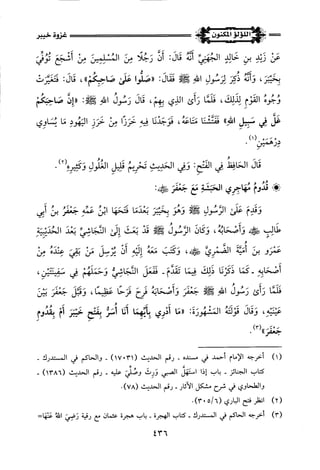 اللؤلؤ المكنون
غزوة خيبر
عَنْ زَيْدِ بنِ خَالِدٍ الجُهَنِيِّ أَنَّهُ قَالَ: أَنَّ رَجُلًا مِنَ المُسْلِمِينَ مِنْ أَشْجَعَ تُوُفِّيَ
بِخَيْبَرَ، وَأَنَّهُ ذُكِرَ لِرَسُولِ اللهِ ﷺ فَقَالَ: «صَلُّوا عَلَى صَاحِبِكُمْ»، قَالَ: فَتَغَيَّرَتْ
وُجُوهُ القَوْمِ لِذَلِكَ، فَلَمَّا رَأَى الذِي بِهِمْ، قَالَ رَسُولُ اللهِ ﷺ: «إِنَّ صَاحِبَكُمْ
غَلَّ فِي سَبِيلِ اللهِ» فَفَتَّشْنَا مَتَاعَهُ، فَوَجَدْنَا فِيهِ خَرَزًا مِنْ خَرَزِ اليَهُودِ مَا يُسَاوِي
دِرْهَمَيْنِ(١).
قَالَ الحَافِظُ فِي الفَتْحِ: وَفِي الحَدِيثِ تَحْرِيمُ قَلِيلِ الغُلُولِ وَكَثِيرِهِ(٢).
قُدُومُ مُهَاجِرِي الحَبَشَةِ مَعَ جَعْفَرٍ ﵁:
وَقَدِمَ عَلَى الرَّسُولِ ﷺ وَهُوَ بِخَيْبَرَ بَعْدَمَا فَتَحَهَا ابْنُ عَمِّهِ جَعْفَرُ بنُ أَبِي
طَالِبٍ ﵁ وَأَصْحَابُهُ، وَكَانَ الرَّسُولُ ﷺ قَدْ بَعَثَ إِلَى النَّجَاشِيِّ بَعْدَ الحُدَيْبِيَةِ
عَمْرَو بنَ أُمَيَّةَ الضَّمْرِيَّ ﵁، وَكَتَبَ مَعَهُ إِلَيْهِ أَنْ يُرْسِلَ مَنْ بَقِيَ عِنْدَهُ مِنْ
أَصْحَابِهِ - كَمَا ذَكَرْنَا ذَلِكَ فِيمَا تَقَدَّمَ - فَفَعَلَ النَّجَاشِيُّ وَحَمَلَهُمْ فِي سَفِينَتَيْنِ،
فَلَمَّا رَأَى رَسُولُ اللهِ ﷺ جَعْفَرَ وَأَصْحَابَهُ فَرِحَ فَرَحًا عَظِيمًا، وَقَبَّلَ جَعْفَرَ بَيْنَ
عَيْنَيْهِ، وَقَالَ قَوْلَتَهُ المَشْهُورَةَ: «مَا أَدْرِي بِأَيِّهِمَا أَنَا أُسَرُّ بِفَتْحِ خَيْبَرَ أَمْ بِقُدُومِ
جَعْفَرَ»(٣).
(١) أخرجه الإمام أحمد في مسنده - رقم الحديث (١٧٠٣١) - والحاكم في المستدرك -
كتاب الجنائز - باب إذا استهل الصبي وَرِثَ وصُلِّيَ عليه - رقم الحديث (١٣٨٦) -
والطحاوي في شرح مشكل الآثار - رقم الحديث (٧٨).
(٢) انظر فتح الباري (٣٠٥/٦).
(٣) أخرجه الحاكم في المستدرك - كتاب الهجرة - باب هجرة عثمان مع رقية رَضِيَ اللهُ عَنْهَا=
٤٣٦